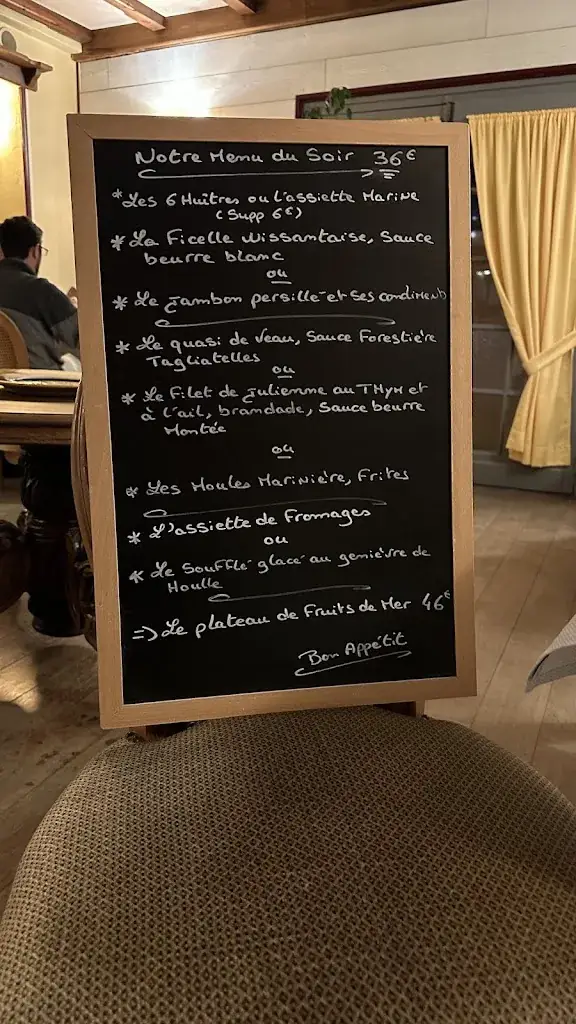 Notre Menu du Soir 36€
* Les 6 Huîtres ou L'assiette Marine
(Supp 6€)
* La Ficelle Wissantaise, Sauce
beurre blanc
ou
* Le Jambon persillé et Ses condiments
* Le quasi de veau, Sauce Forestière
Tagliatelles
ou
* Le Filet de Julienne au THYM et
à l'ail, brandade, Sauce beurre
Montée
ou
* Les Moules Marinière, Frites
* L'assiette de Fromages
ou
* Le Soufflé glacé au genièvre de
Houlle
=> Le plateau de Fruits de Mer 46€
Bon Appétit